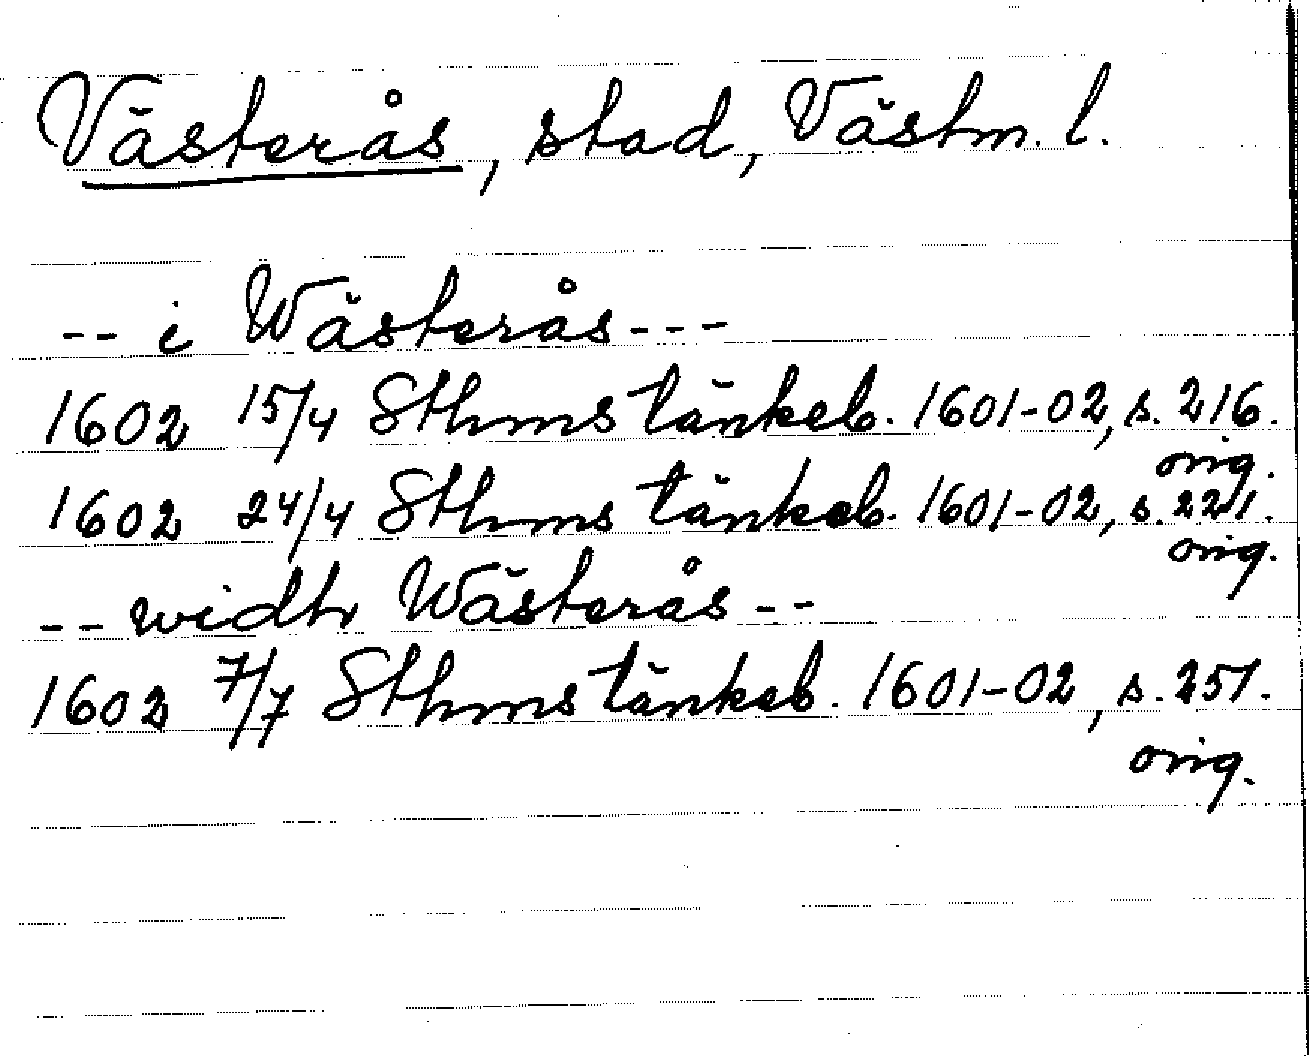 Västerås, stad, Västm. l.
-- i Wästerås ---
1602 15/4 Sthms tänkeb. 1601-02, s. 216.
orig.
1602 24/4 Sthms tänkeb. 1601-02, s. 221.
orig.
-- widh Wästerås --
1602 7/7 Sthms tänkeb. 1601-02, s. 251.
orig.